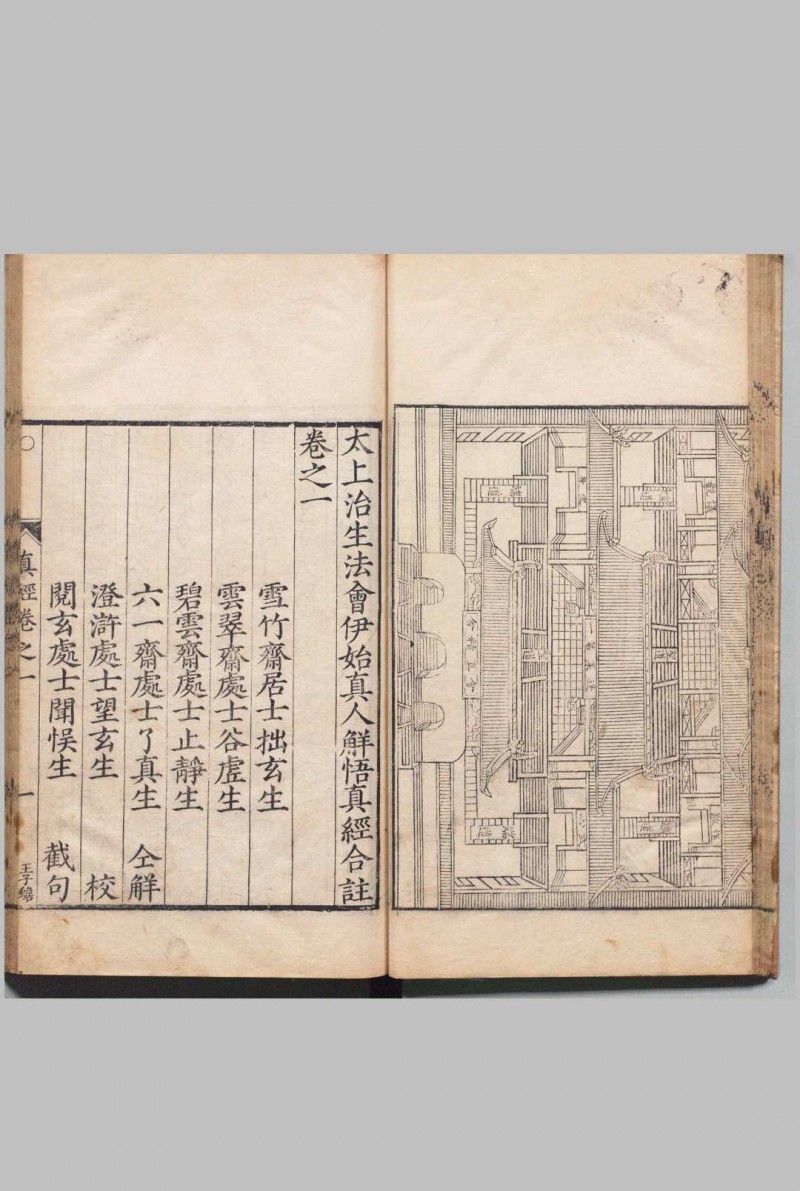 太上治生法會伊始真人解悟真經合註
卷之一
雪竹齋居士拙玄生
雲翠齋處士谷虛生
碧雲齋處士止靜生
六一齋處士了真生 仝觧
澄滸處士望玄生 校
閱玄處士聞悞生 截句
真經卷之一 一